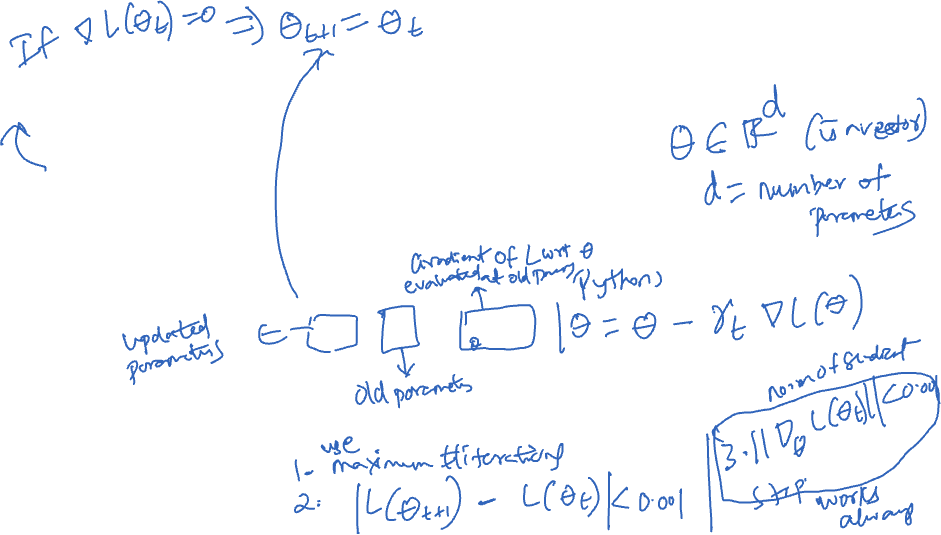 If ∇L(θt)=0 ⇒ θt+1 = θt
θ ∈ ℝ^d (is a vector)
d = number of
parameters
Gradient of L wrt θ
evaluated at old params
(Python)
updated
parameters
θ = θ - γt ∇L(θ)
old parameters
norm of gradient
1- use maximum # iterations
2: |L(θt+1) - L(θt)| < 0.001
3. ||∇θ L(θt)|| < 0.001
stop
works
always